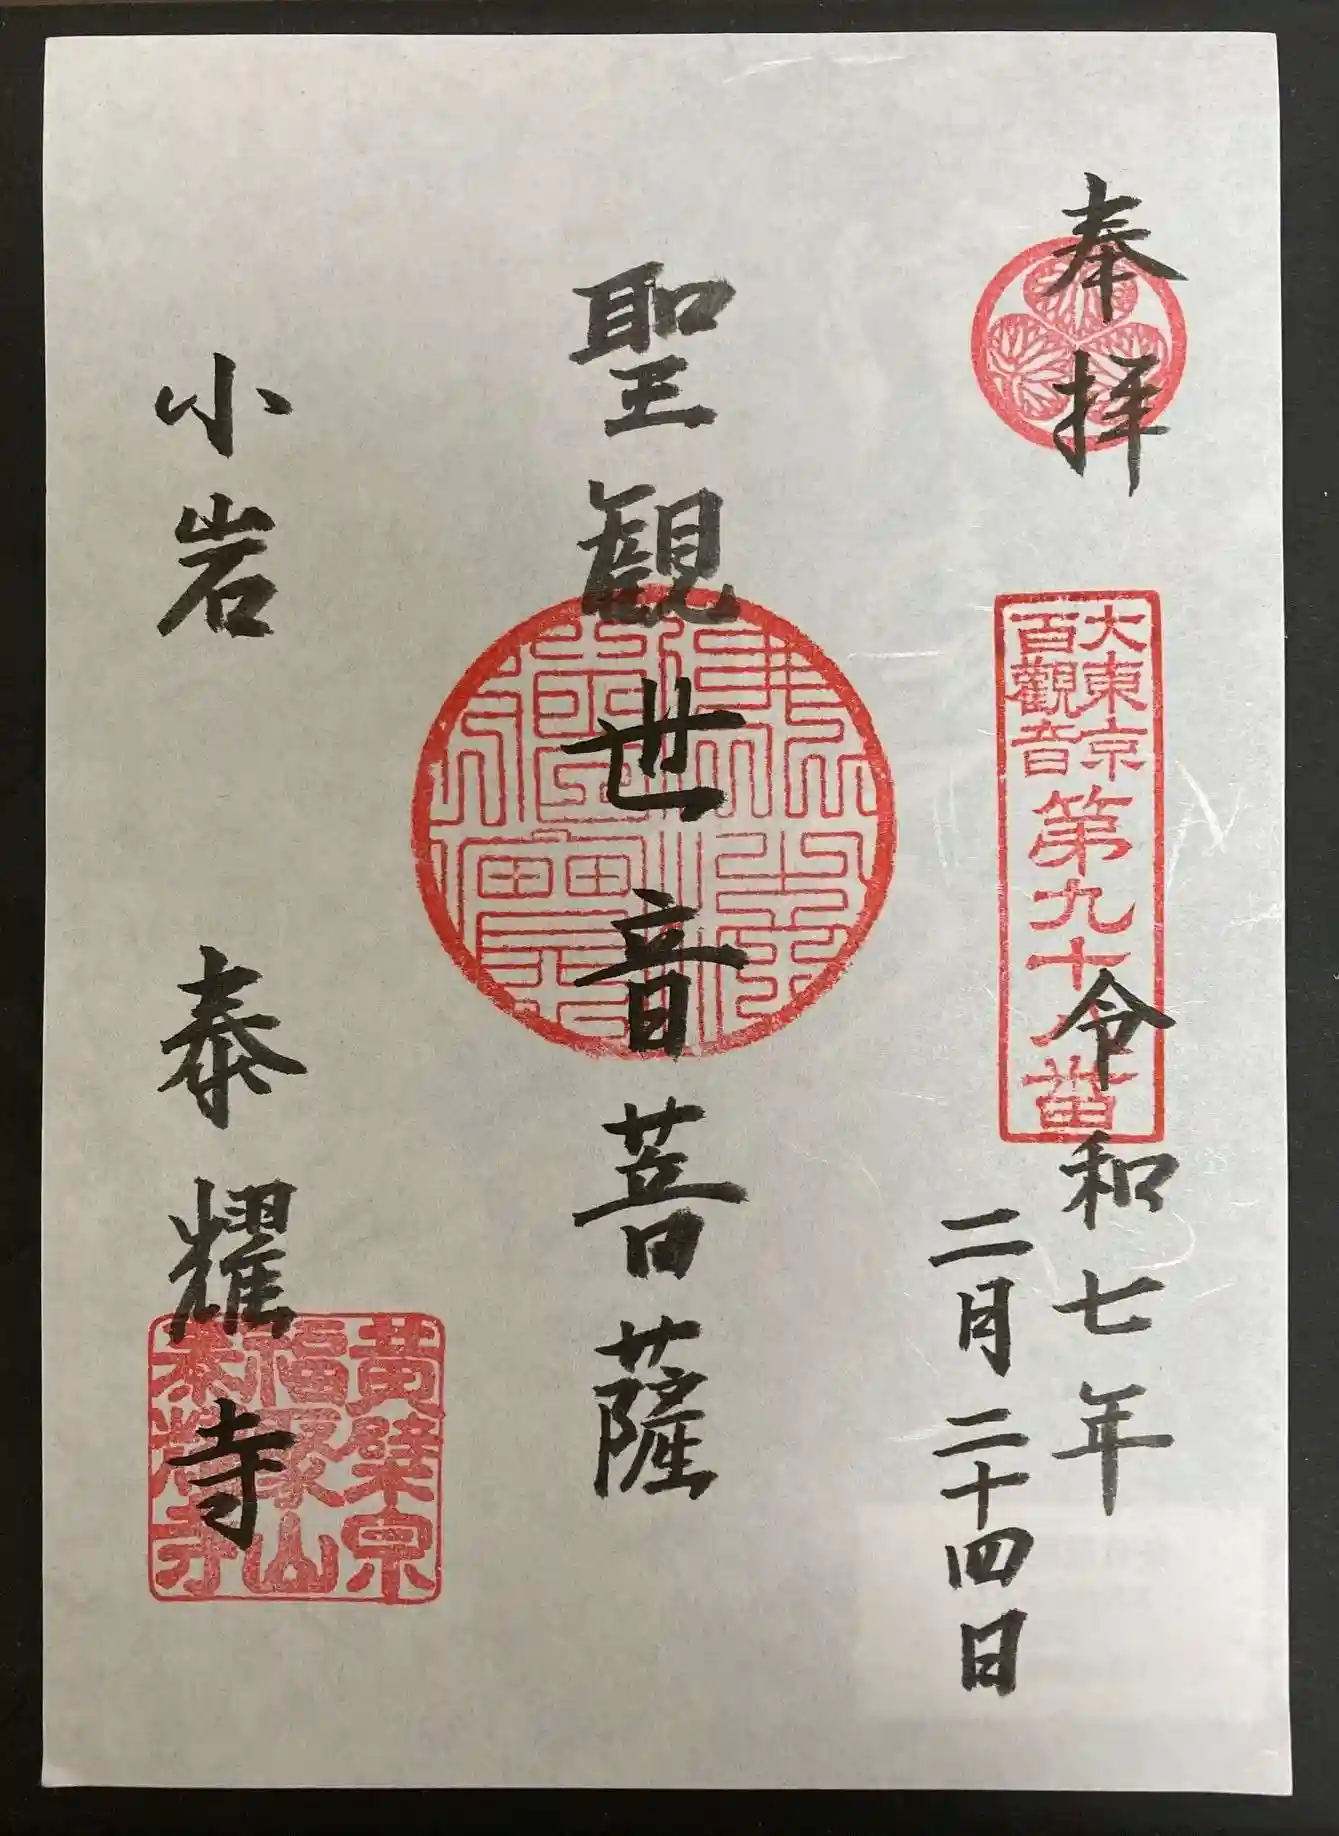 奉拝
大東京
百觀音
第九十八番
令和七年
二月二十四日
聖観世音菩薩
小岩 泰耀寺
黄檗宗
福聚山
泰耀寺